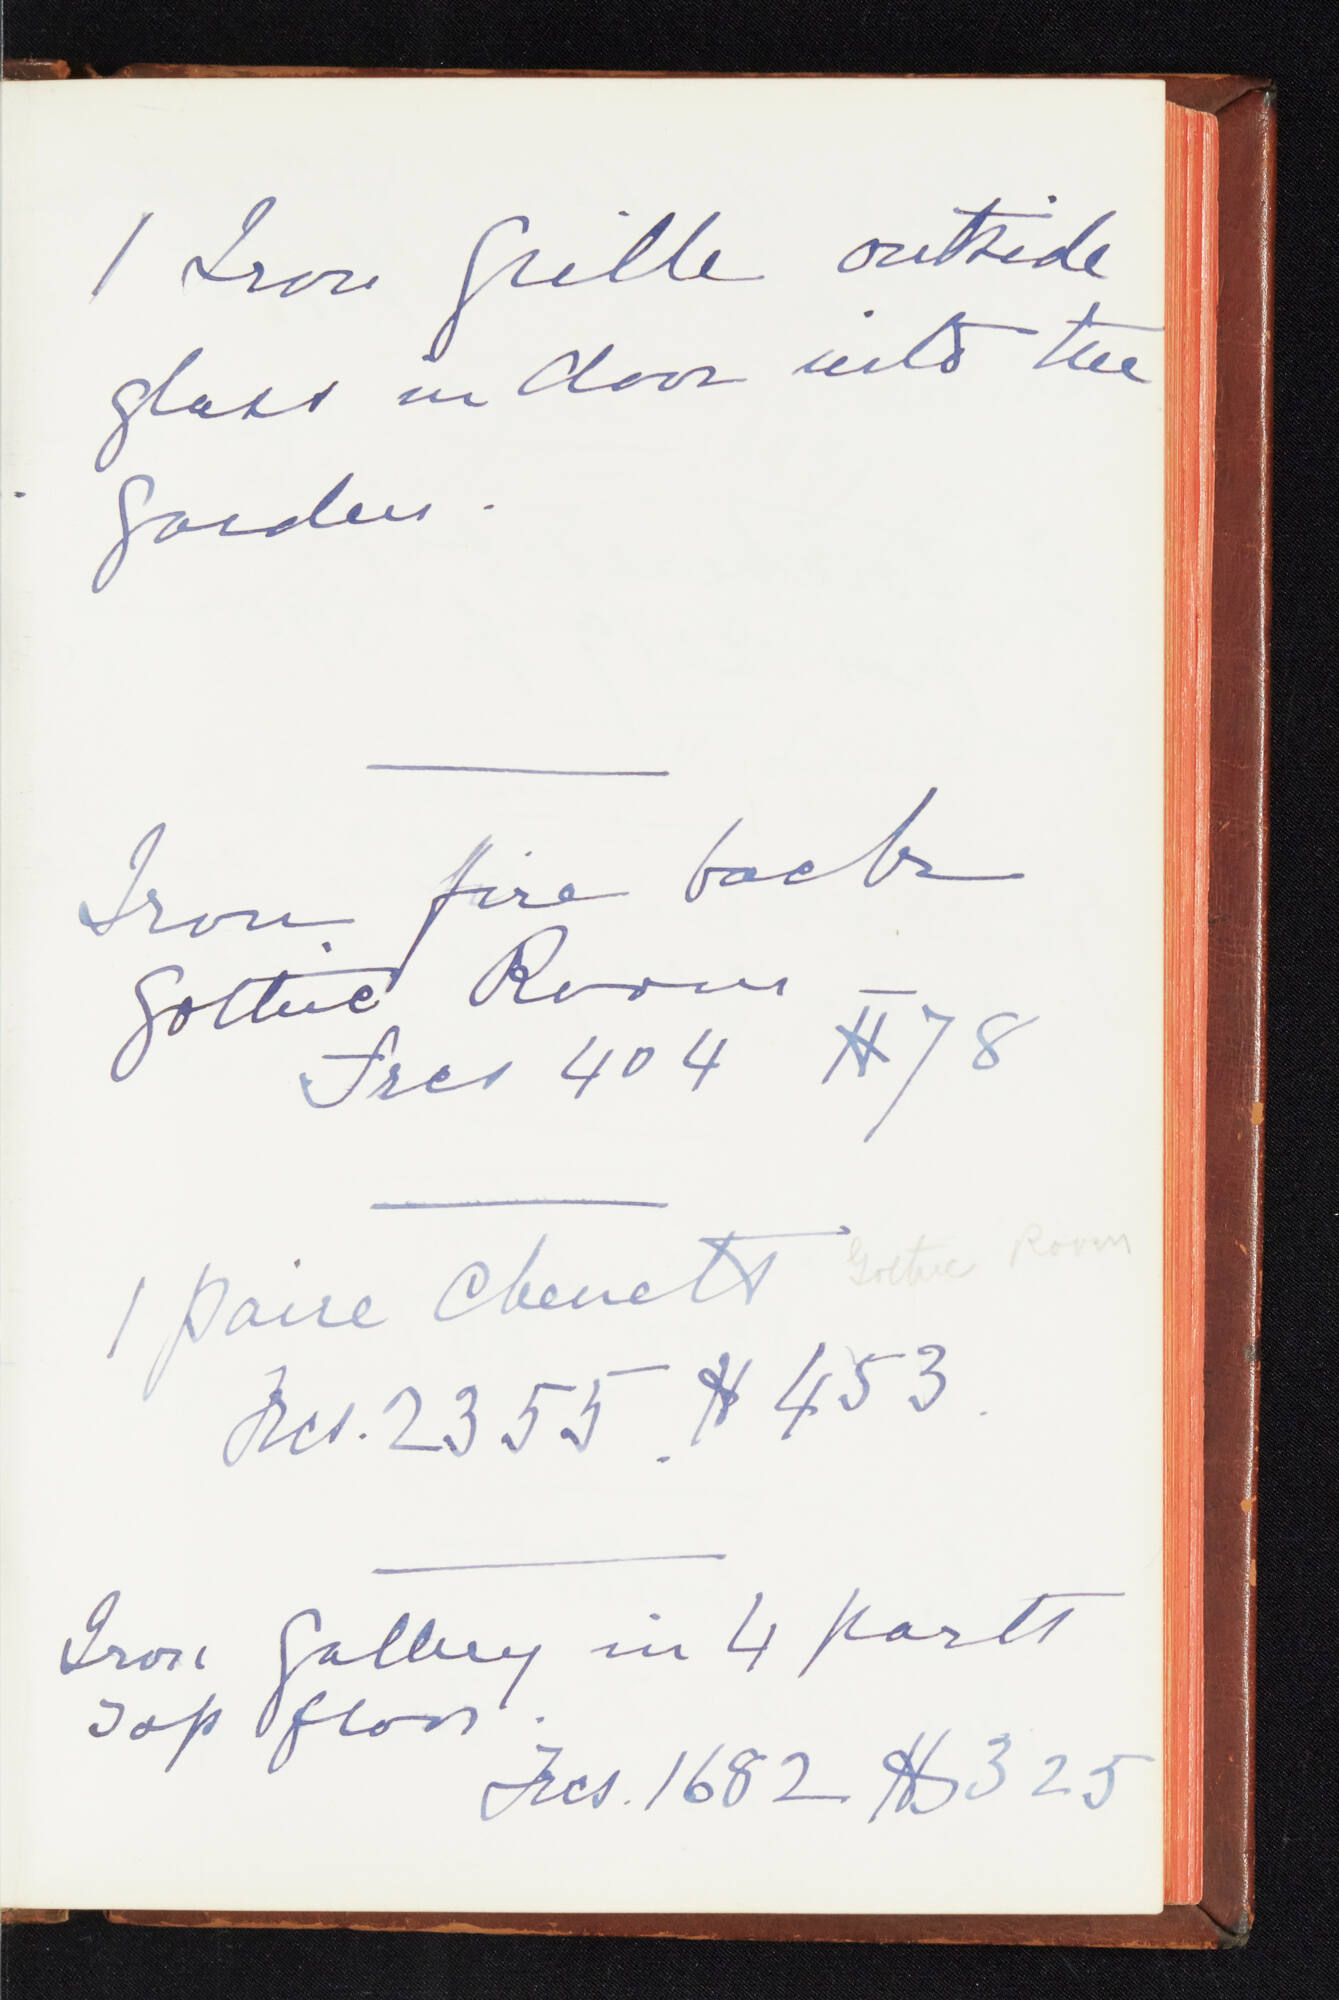 1 Iron Grille outside
glass in door into the
Garden.
Iron fire back
Gothic Room
Frcs 404 $78
1 paire chenets Gothic Room
Frcs. 2355. $453.
Iron Gallery in 4 parts
Top floor.
Frcs. 1682 $325